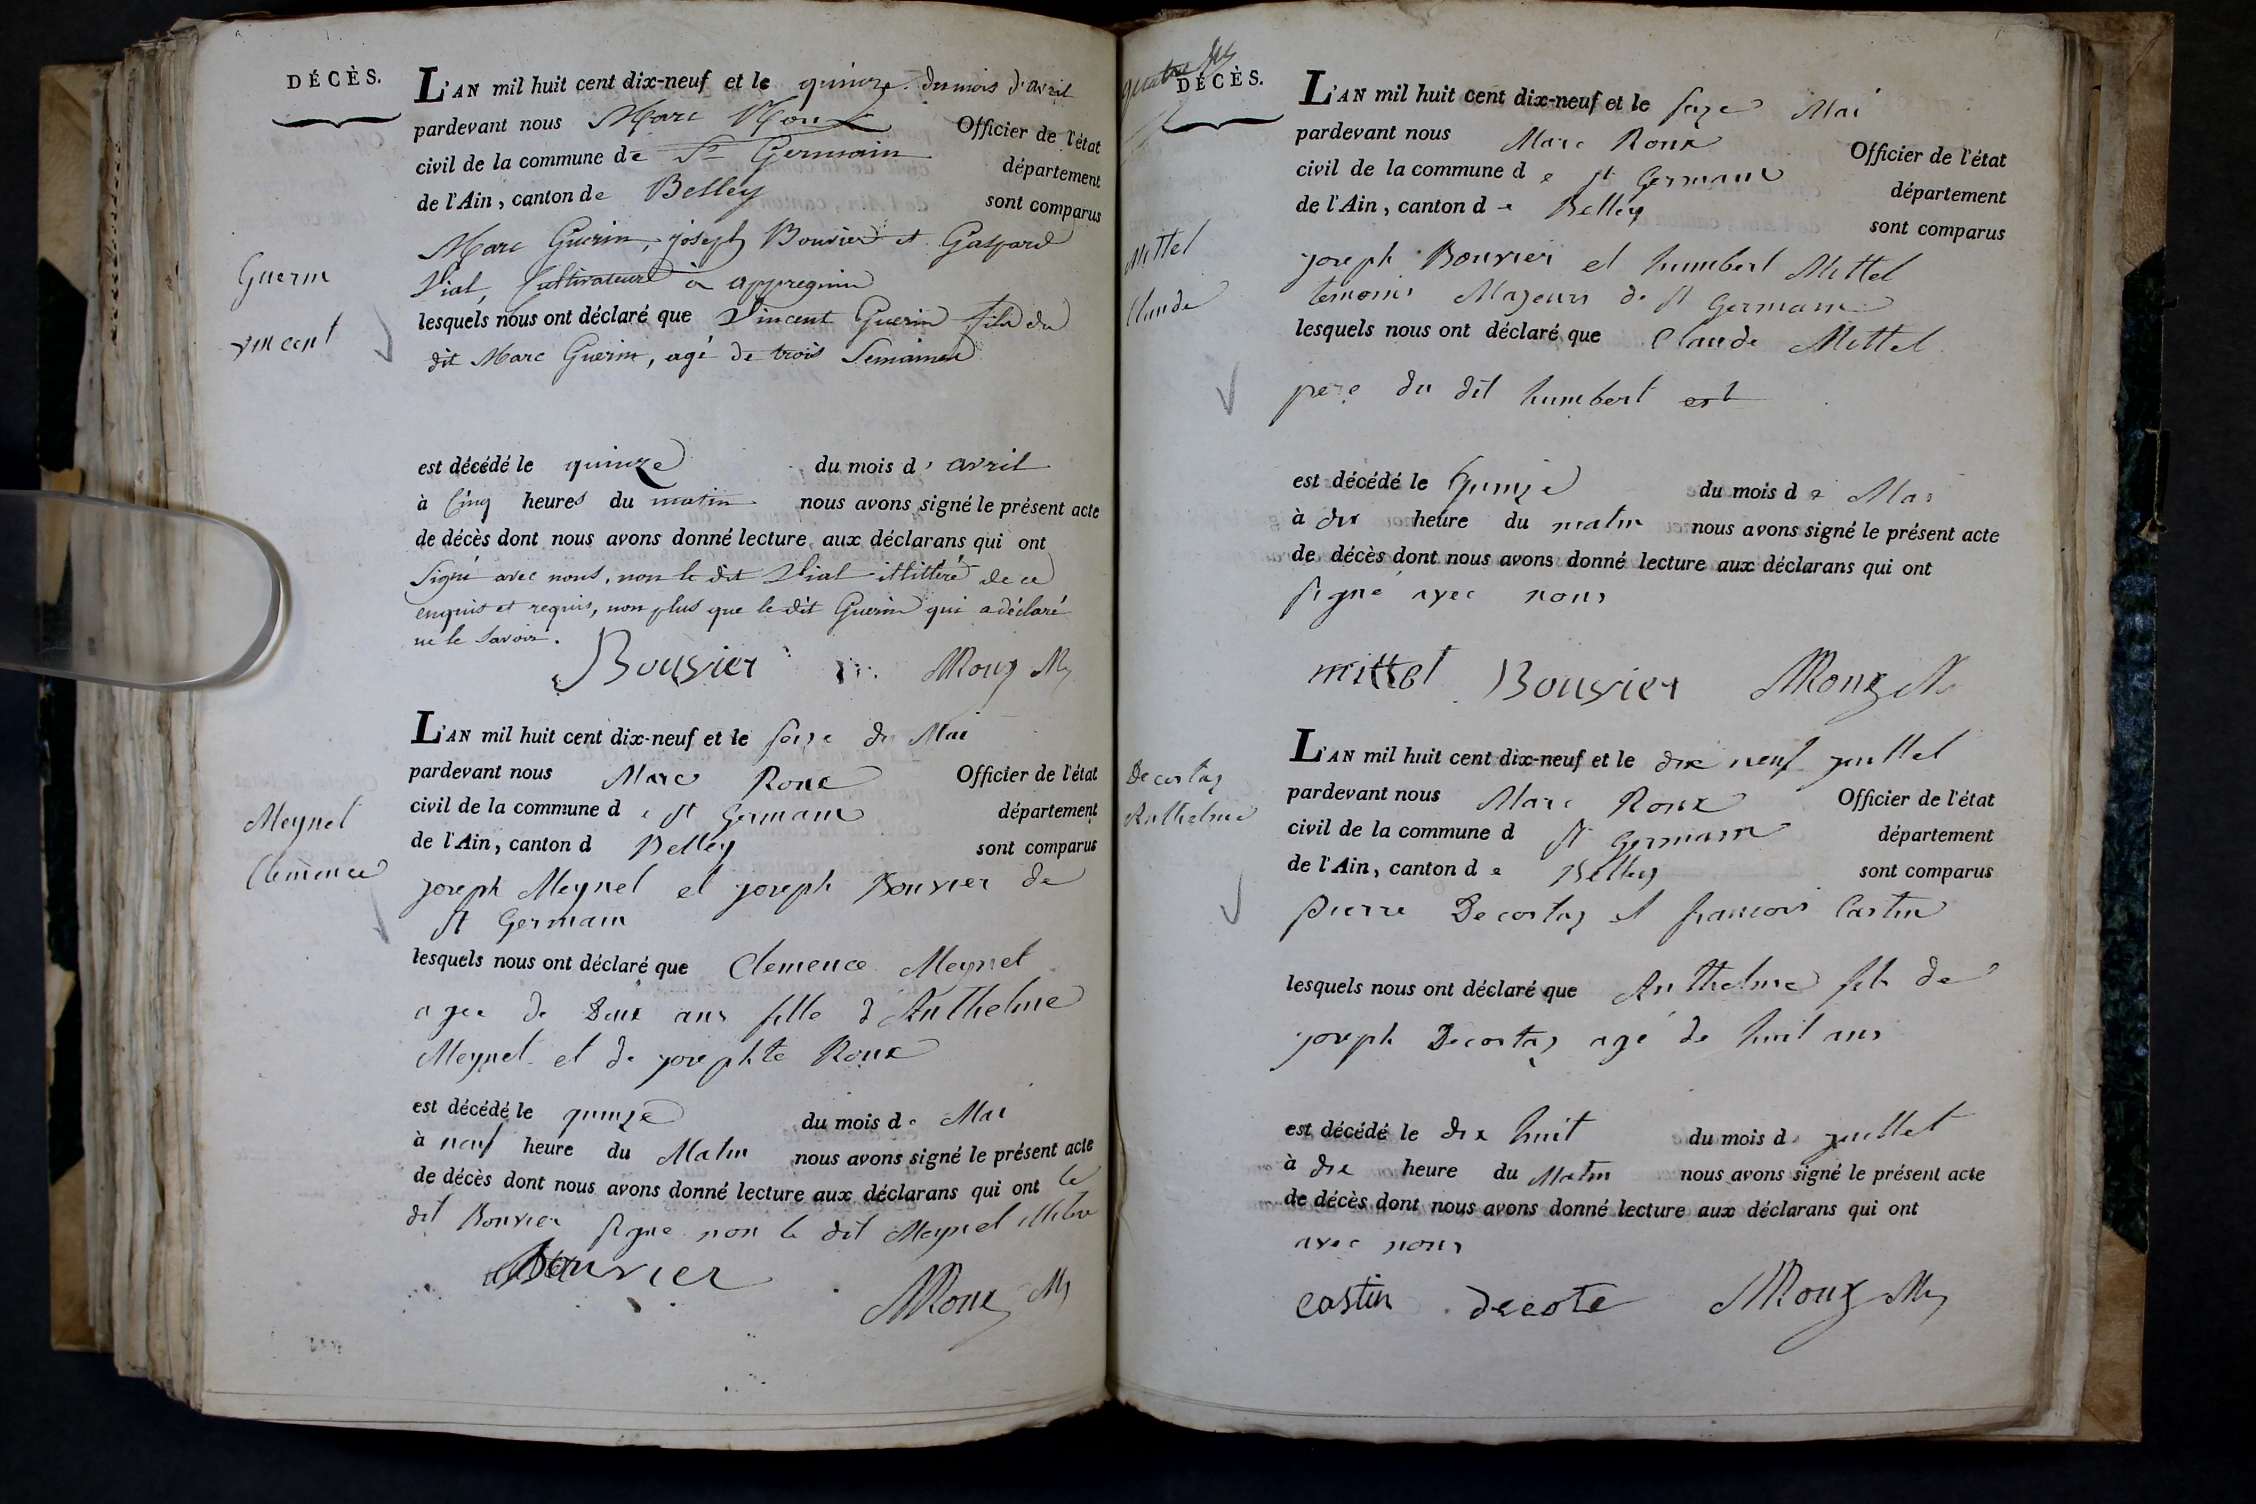 DÉCÈS.
L'AN mil huit cent dix-neuf et le quinze du mois d'avril
pardevant nous Marc Roux Officier de l'état
civil de la commune de St Germain département
de l'Ain, canton de Belley sont comparus
Marc Guerin, joseph Bouvier et Gaspard
Vial, Cultivateurs à appregnin
Guerin
vincent
lesquels nous ont déclaré que Vincent Guerin fils du
dit Marc Guerin, agé de trois Semaines
est décédé le quinze du mois d'avril
à Cinq heures du matin nous avons signé le présent acte
de décès dont nous avons donné lecture aux déclarans qui ont
Signé avec nous, non le dit Vial illittéré de ce
enquis et requis, non plus que le dit Guerin qui a déclaré
ne le Savoir.
Bouvier MRoux
L'AN mil huit cent dix-neuf et le seize de Mai
pardevant nous Marc Roux Officier de l'état
civil de la commune d e st Germain département
de l'Ain, canton d Belley sont comparus
Meynet
Clemence
joseph Meynet et joseph Bouvier de
st Germain
lesquels nous ont déclaré que Clemence Meynet
agee de Deux ans fille d'Anthelme
Meynet et de josephte Roux
est décédé le quinze du mois de Mai
à neuf heure du Matin nous avons signé le présent acte
de décès dont nous avons donné lecture aux déclarans qui ont le
dit Bouvier signe non le dit Meynet
Bouvier
MRoux
quatre
DÉCÈS.
L'AN mil huit cent dix-neuf et le seze Mai
pardevant nous Marc Roux Officier de l'état
civil de la commune d e st Germain département
de l'Ain, canton d e Belley sont comparus
Mittel
Claude
joseph Bouvier et humbert Mittel
temoins Majeurs de st Germain
lesquels nous ont déclaré que Claude Mittel
pere du dit humbert est
est décédé le Quinze du mois d e Mai
à dix heure du matin nous avons signé le présent acte
de décès dont nous avons donné lecture aux déclarans qui ont
signé avec nous
mittel Bouvier MRoux
L'AN mil huit cent dix-neuf et le dix neuf juillet
pardevant nous Marc Roux Officier de l'état
civil de la commune d st Germain département
de l'Ain, canton d e Belley sont comparus
Decostaz
Anthelme
pierre Decostaz et francois Castin
lesquels nous ont déclaré que Anthelme fils de
joseph Decostaz agé de huit ans
est décédé le dix huit du mois d juillet
à dix heure du Matin nous avons signé le présent acte
de décès dont nous avons donné lecture aux déclarans qui ont
avec nous
castin decote MRoux